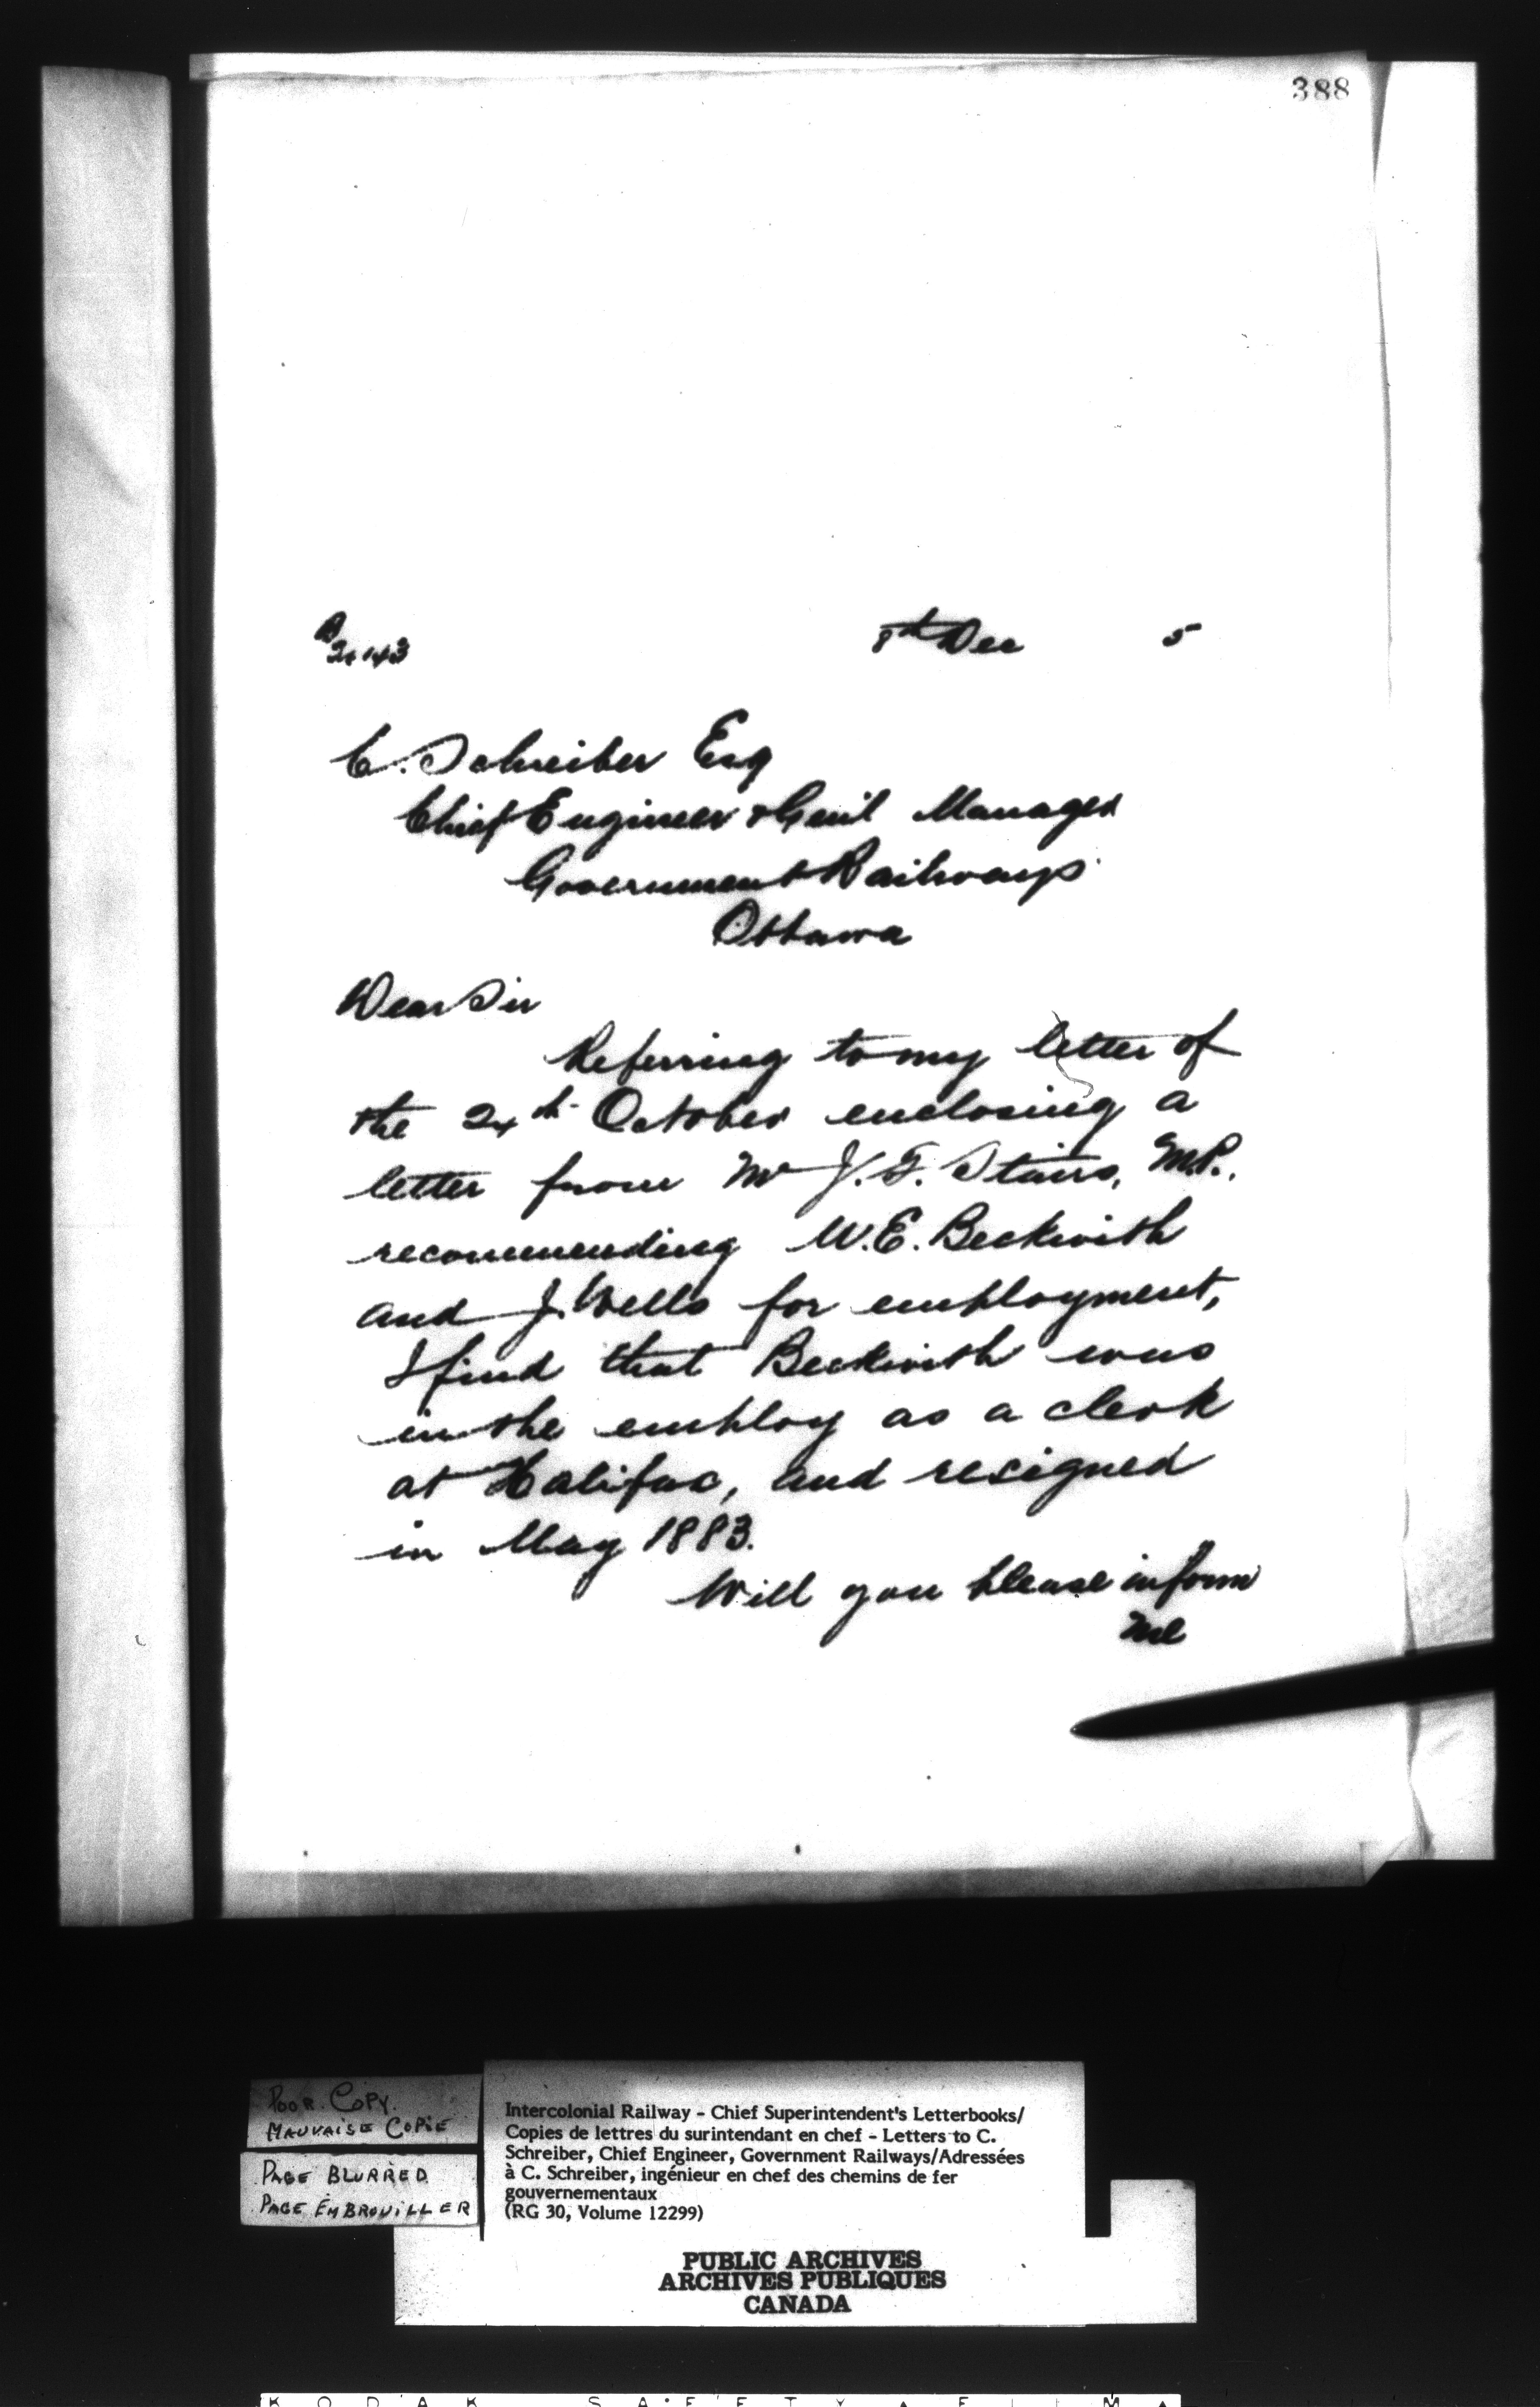 388
A
24143
8th Dec 5
C. Schreiber Esq
Chief Engineer & Genl Manager
Government Railways
Ottawa
Dear Sir
Referring to my letter of
the 24th October enclosing a
letter from Mr J. F. Stairs, M.P.,
recommending W.E. Beckwith
and J. Wells for employment,
I find that Beckwith was
in the employ as a clerk
at Halifax, and resigned
in May 1883.
Will you please inform
me
POOR COPY.
MAUVAISE COPIE
PAGE BLURRED
PAGE EMBROUILLER
Intercolonial Railway - Chief Superintendent's Letterbooks/
Copies de lettres du surintendant en chef - Letters to C.
Schreiber, Chief Engineer, Government Railways/Adressées
à C. Schreiber, ingénieur en chef des chemins de fer
gouvernementaux
(RG 30, Volume 12299)
PUBLIC ARCHIVES
ARCHIVES PUBLIQUES
CANADA
KODAK SAFETY FILM